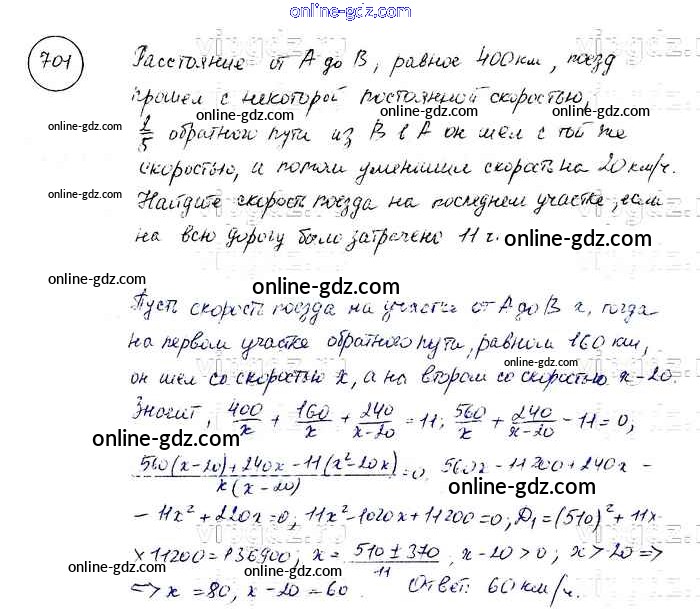 online-gdz.com
701
Расстояние от А до В, равное 400 км, поезд
прошел с некоторой постоянной скоростью,
2/5 обратного пути из В в А он шел с той же
скоростью, и потом уменьшил скорость на 20 км/ч.
Найдите скорость поезда на последнем участке, если
на всю дорогу было затрачено 11 ч.
online-gdz.com
Пусть скорость поезда на участке от А до В x, тогда
на первом участке обратного пути, равном 160 км,
он шел со скоростью x, а на втором со скоростью x-20.
Значит, 400/x + 160/x + 240/(x-20) = 11; 560/x + 240/(x-20) - 11 = 0,
(560(x-20)+240x-11(x²-20x))/(x(x-20)) = 0, 560x - 11200 + 240x -
- 11x² + 220x = 0; 11x² - 1020x + 11200 = 0; D₁ = (510)² + 11×
× 11200 = 136900; x = (510 ± 370)/11, x - 20 > 0; x > 20 =>
=> x = 80, x - 20 = 60. Ответ: 60 км/ч.